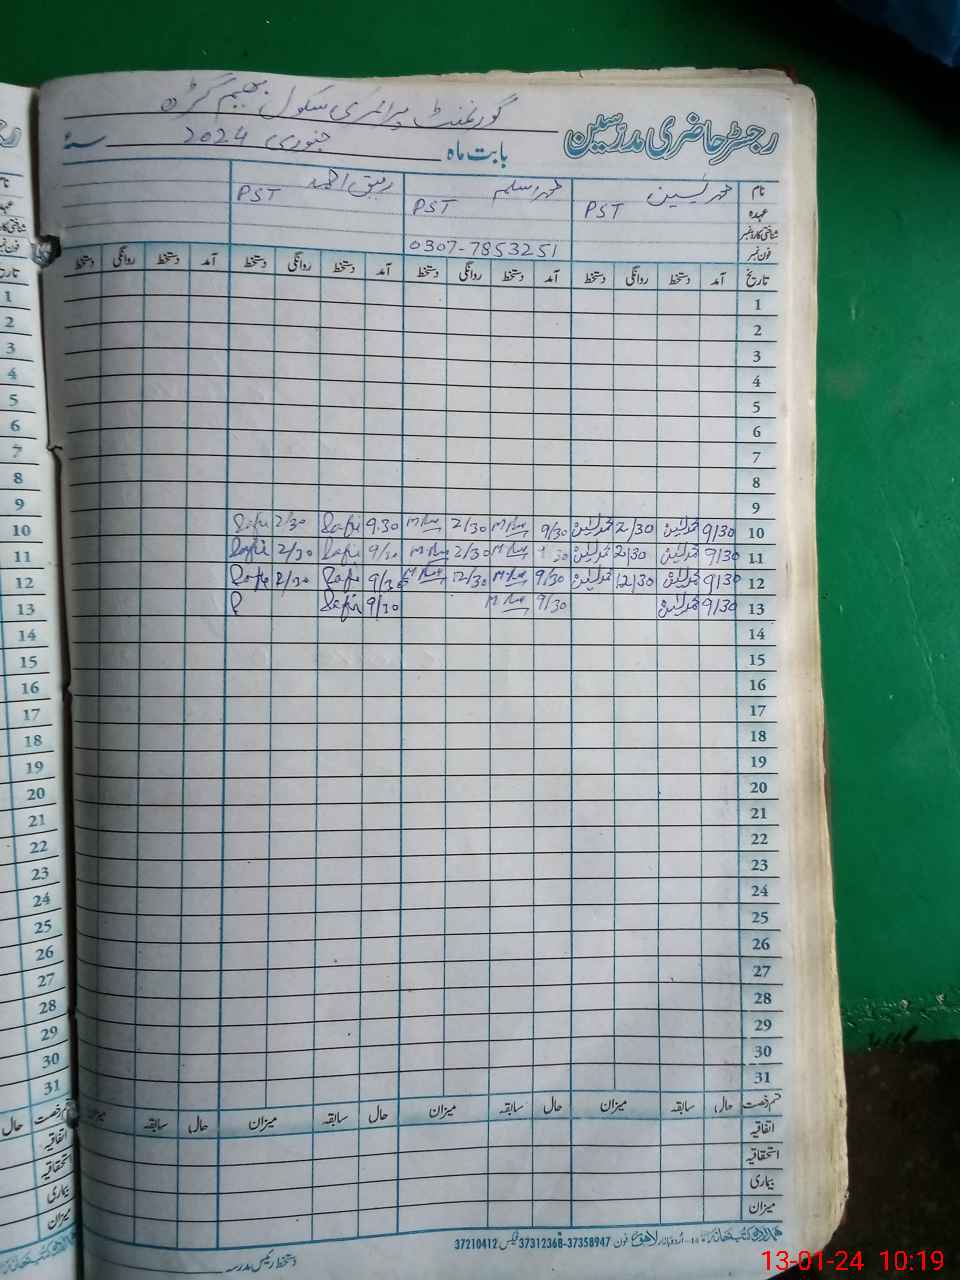 گورنمنٹ پرائمری سکول بھیم گڑھ
رجسٹر حاضری مدرسین
بابت ماہ جنوری 2024 سنہ
نام محمد یٰسین محمد اسلم رفیق احمد
عہدہ PST PST PST
شناختی کارڈ نمبر
فون نمبر 0307-7853251
تاریخ آمد دستخط روانگی دستخط آمد دستخط روانگی دستخط آمد دستخط روانگی دستخط آمد دستخط روانگی دستخط
1
2
3
4
5
6
7
8
9
10 9/30 محمد یٰسین 2/30 محمد یٰسین 9/30 2/30 9.30 Rafiq 2/30 Rafiq
11 9/30 محمد یٰسین 2/30 محمد یٰسین 9 30 2/30 9/30 Rafiq 2/30 Rafiq
12 9/30 محمد یٰسین 12/30 محمد یٰسین 9/30 12/30 9/30 Rafiq Rafiq
13 9/30 محمد یٰسین 9/30 9/30 Rafiq R
14
15
16
17
18
19
20
21
22
23
24
25
26
27
28
29
30
31
قسم رخصت حال سابقہ میزان حال سابقہ میزان حال سابقہ میزان حال سابقہ میزان
اتفاقیہ
استحقاقیہ
بیماری
میزان
اردو بازار لاہور فون 37358947-37312368 فیکس 37210412
دستخط رئیس مدرسہ
13-01-24 10:19